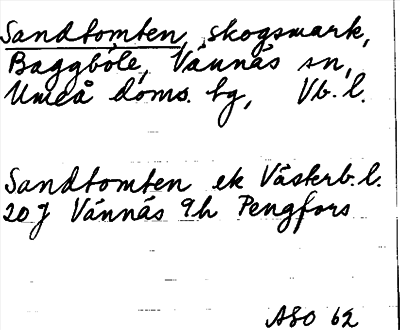 Sandtomten, skogsmark,
Baggböle, Vännäs sn,
Umeå doms. bg, Vb. l.
Sandtomten ek Västerb. l.
20 J Vännäs 9h Pengfors
ASO 62